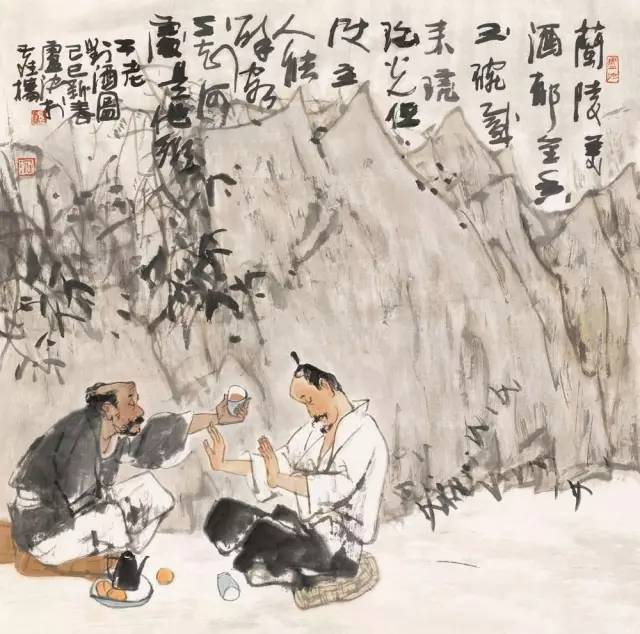 蘭陵美
酒郁金香
玉碗盛
来琥
珀光但
使主
人能
醉客
不知何
處是他鄉
老
對酒圖
己巳新春
盧沉於